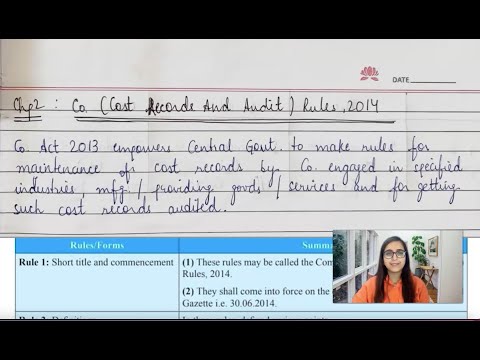 DATE
Chp2 : Co. (Cost Records And Audit) Rules, 2014
Co. Act 2013 empowers Central Govt. to make rules for
maintenance of cost records by Co. engaged in specified
industries, mfg. / providing goods / services and for getting
such cost records audited.
Rules/Forms Summa
Rule 1: Short title and commencement (1) These rules may be called the Com
Rules, 2014.
(2) They shall come into force on the
Gazette i.e. 30.06.2014.